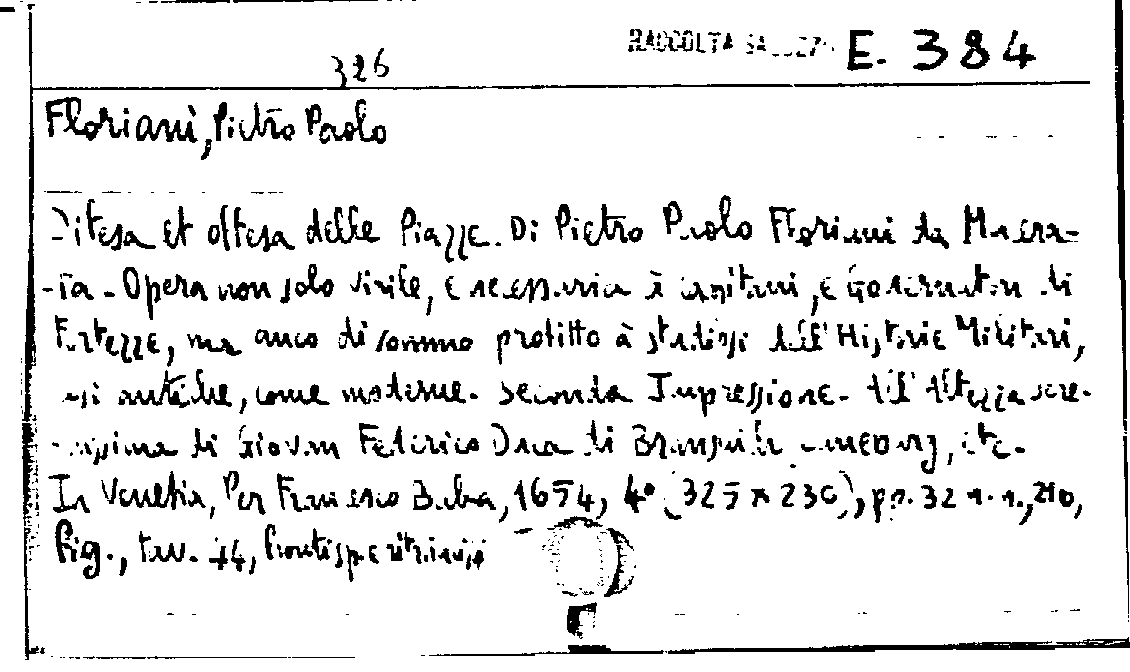 RACCOLTA E. 384
326
Floriani, Pietro Paolo
Difesa et offesa delle Piazze. Di Pietro Paolo Floriani da Macera-
-ta. Opera non solo utile, e necessaria à capitani, e Governatori di
Fortezze, ma anco di sommo profitto à studiosi dell' Historie Militari,
così antiche, come moderne. Seconda Impressione. All' Altezza sere-
-nissima di Giovan Federico Duca di etc.
In Venetia, Per Francesco Baba, 1654, 4° (325 x 230), pp. 32 n.n., 210,
fig., tav.